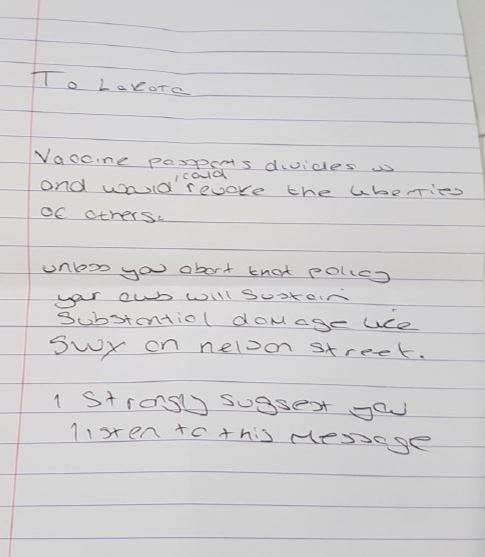 To Lakota
Vaccine passports divides us
and would, could revoke the liberties
of others.
unless you abort that policy
your club will sustain
substantial damage like
SWX on nelson street.
I strongly suggest you
listen to this message